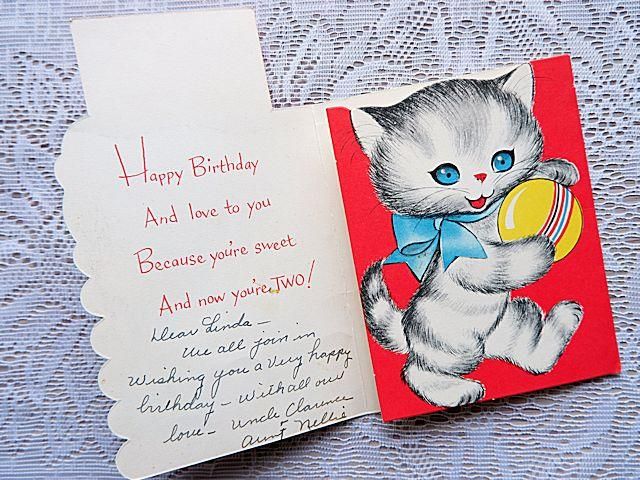 Happy Birthday
And love to you
Because you're sweet
And now you're TWO!
Dear Linda —
We all join in
Wishing you a very happy
birthday — With all our
love — Uncle Clarence
Aunt Nellie